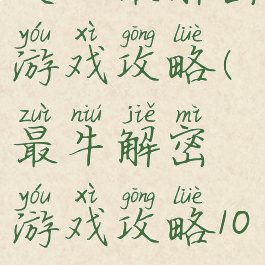 yóu xì gōng lüè
游戏攻略(
zuì niú jiě mì
最牛解密
yóu xì gōng lüè
游戏攻略10